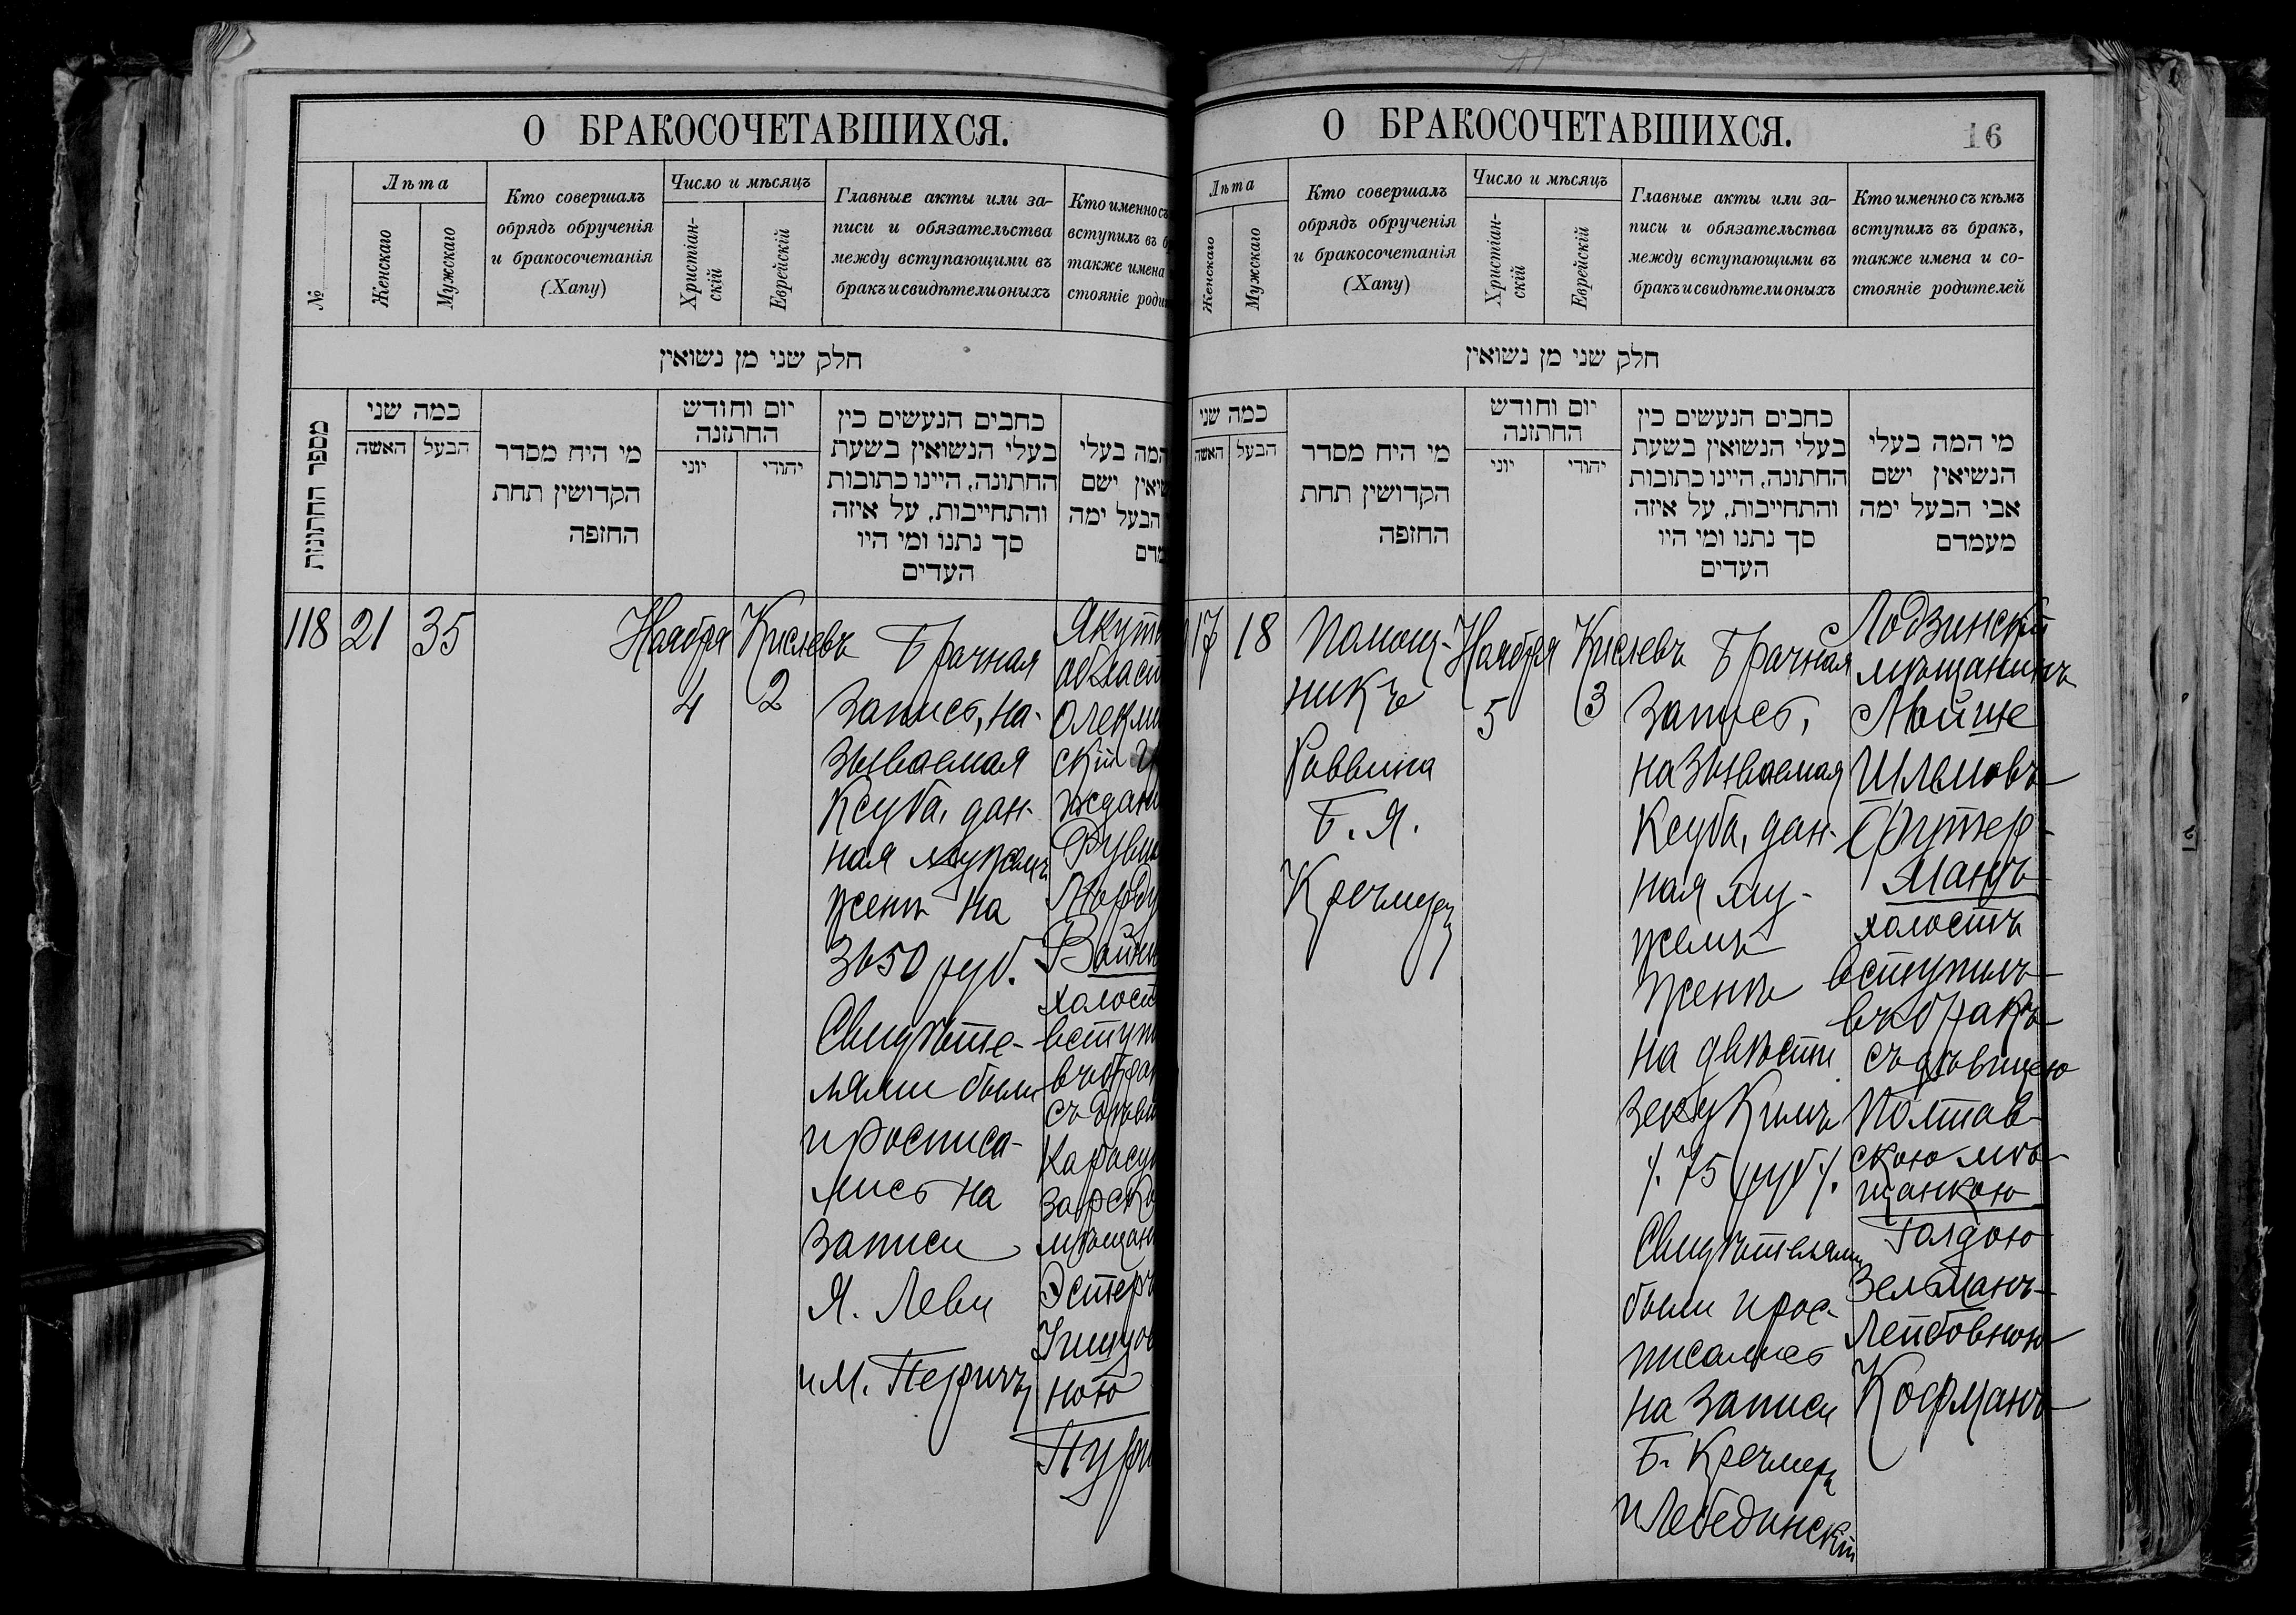 О БРАКОСОЧЕТАВШИХСЯ.
№
Лѣта
Женскаго
Мужскаго
Кто совершалъ
обрядъ обрученія
и бракосочетанія
(Хапу)
Число и мѣсяцъ
Христіан-
скій
Еврейскій
Главные акты или за-
писи и обязательства
между вступающими въ
бракъ и свидѣтели оныхъ
Кто именно съ
вступилъ въ б
также имена
стояніе роди
חלק שני מן נשואין
מספר החתונות
כמה שני
האשה
הבעל
מי היח מסדר
הקדושין תחת
החופה
יום וחודש
החתונה
יוני
יהודי
כתבים הנעשים בין
בעלי הנשואין בשעת
החתונה, היינו כתובות
והתחייבות, על איזה
סך נתנו ומי היו
העדים
המה בעלי
שיאין ישם
הבעל ימה
מדם
118
21
35
Ноября
4
Кислевъ
2
Брачная
запись, на-
зываемая
Ксуба, дан-
ная мужемъ
женѣ на
3650 руб.
Свидѣте-
лями были
и росписа-
лись на
записи
Я. Леви
и М. Перичъ
Якут
област
Олекми
скій
ждан
Рувим
Морду
Вайн
холост
вступ
въ бра
съ дѣви
Карасу
зарско
мѣщан
Эстеръ
ною
Пури
О БРАКОСОЧЕТАВШИХСЯ.
16
Лѣта
Женскаго
Мужскаго
Кто совершалъ
обрядъ обрученія
и бракосочетанія
(Хапу)
Число и мѣсяцъ
Христіан-
скій
Еврейскій
Главные акты или за-
писи и обязательства
между вступающими въ
бракъ и свидѣтели оныхъ
Кто именно съ кѣмъ
вступилъ въ бракъ,
также имена и со-
стояніе родителей
חלק שני מן נשואין
כמה שני
האשה
הבעל
מי היח מסדר
הקדושין תחת
החופה
יום וחודש
החתונה
יוני
יהודי
כתבים הנעשים בין
בעלי הנשואין בשעת
החתונה, היינו כתובות
והתחייבות, על איזה
סך נתנו ומי היו
העדים
מי המה בעלי
הנשיאין ישם
אבי הבעל ימה
מעמדם
17
18
Помощ-
никъ
Раввина
Б. Я.
Кречмеръ
Ноября
5
Кислевъ
3
Брачная
запись,
называемая
Ксуба, дан-
ная му-
жемъ
женѣ
на двѣсти
зекукимъ
/. 75 руб /.
Свидѣтелями
были и рос-
писались
на записи
Б. Кречмеръ
и Лебединскій
Лодзинскій
мѣщанинъ
Мойше
Шльомовъ
Футер-
манъ
холостъ
вступилъ
въ бракъ
съ дѣвицею
Полтав-
скою мѣ-
щанкою
Голдою
Зельманъ-
Лейбовною
Кофманъ